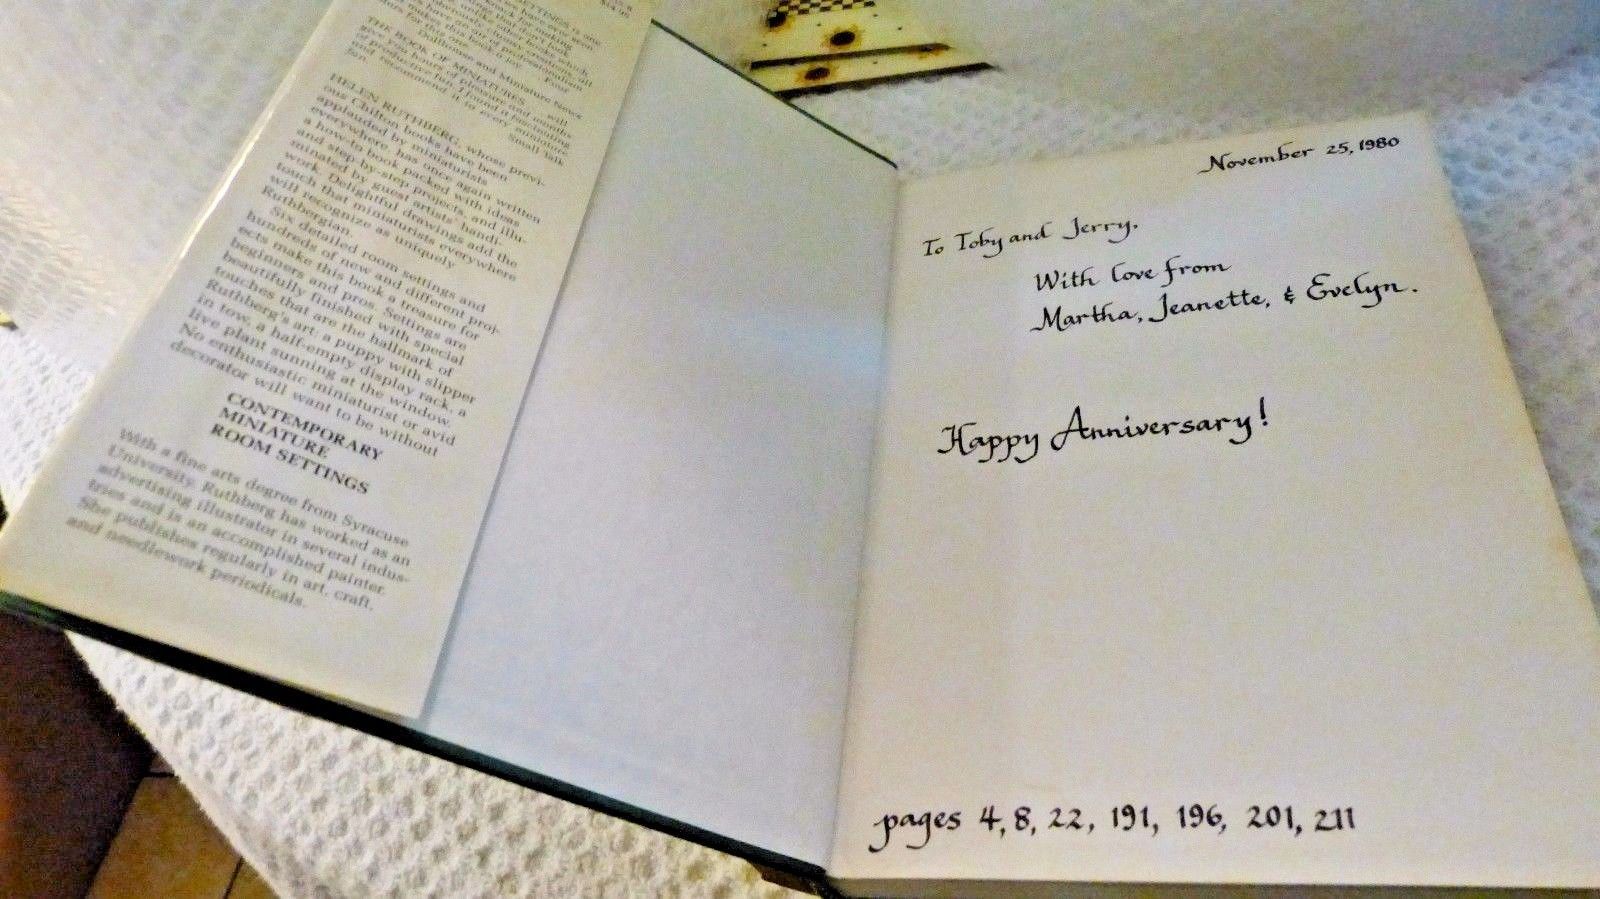 SETTINGS
THE BOOK OF MINIATURES
give you hours of pleasure and months
of productive fun. I found it fascinating
and recommend it to every miniature
fan.
Small Talk
HELEN RUTHBERG, whose previ-
ous Chilton books have been
applauded by miniaturists
everywhere, has once again written
a how-to book packed with ideas
and step-by-step projects, and illu-
minated by guest artists' handi-
work. Delightful drawings add the
touch that miniaturists everywhere
will recognize as uniquely
Ruthbergian.
Six detailed room settings and
hundreds of new and different proj-
ects make this book a treasure for
beginners and pros. Settings are
beautifully finished with special
touches that are the hallmark of
Ruthberg's art: a puppy with slipper
in tow, a half-empty display rack, a
live plant sunning at the window.
No enthusiastic miniaturist or avid
decorator will want to be without
CONTEMPORARY
MINIATURE
ROOM SETTINGS
With a fine arts degree from Syracuse
University, Ruthberg has worked as an
advertising illustrator in several indus-
tries and is an accomplished painter.
She publishes regularly in art, craft,
and needlework periodicals.
November 25, 1980
To Toby and Jerry,
With love from
Martha, Jeanette, & Evelyn.
Happy Anniversary!
pages 4, 8, 22, 191, 196, 201, 211